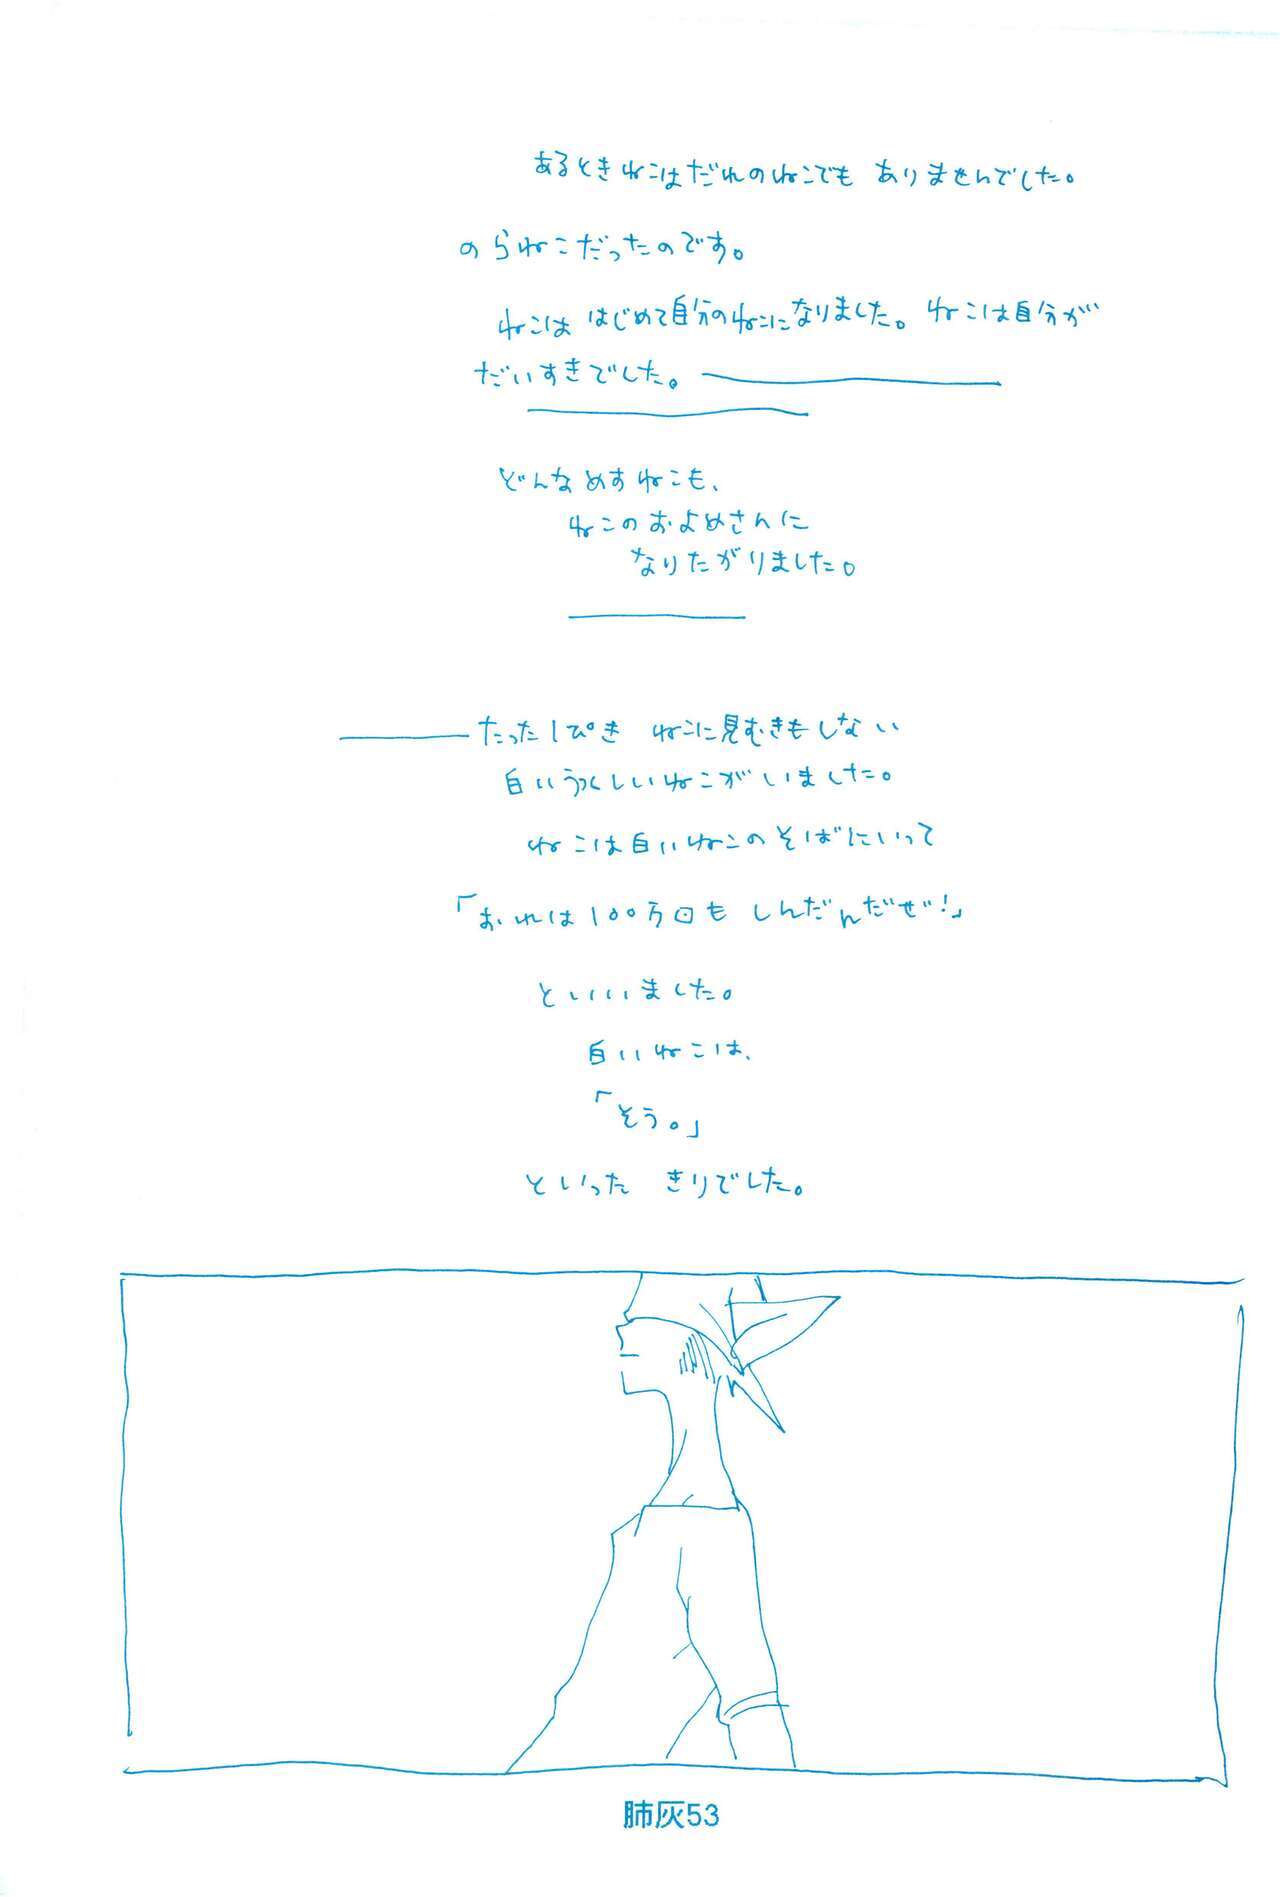 あるときねこはだれのねこでも ありませんでした。
のらねこだったのです。
ねこは はじめて自分のねこになりました。ねこは自分が
だいすきでした。
どんなめすねこも、
ねこのおよめさんに
なりたがりました。
たった1ぴき ねこに見むきもしない
白いうつくしいねこがいました。
ねこは白いねこのそばにいって
「おれは100万回も しんだんだぜ!」
といいました。
白いねこは、
「そう。」
といった きりでした。
肺灰53